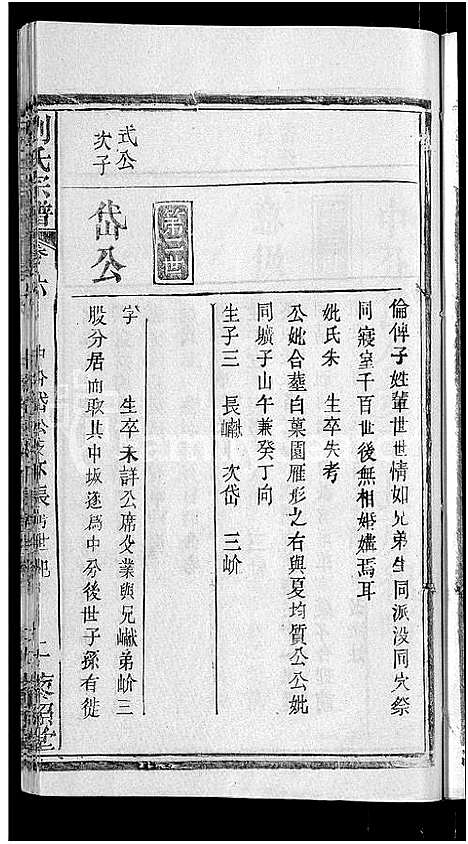 倫俾子姓輩世世情如兄弟生同派没同穴祭
同寢室千百世後無相婚媾焉耳
妣氏朱 生卒失考
公妣合葬白菓園雁形之右與夏均質公公妣
同壙子山午兼癸丁向
生子三 長巘 次岱 三岕
第二世
式公次子
岱公
字 生卒未詳公席父業與兄巘弟岕三
股分居而取其中坂遂為中分後世子孫有徙
劉氏宗譜
卷六
中分岱公
世紀